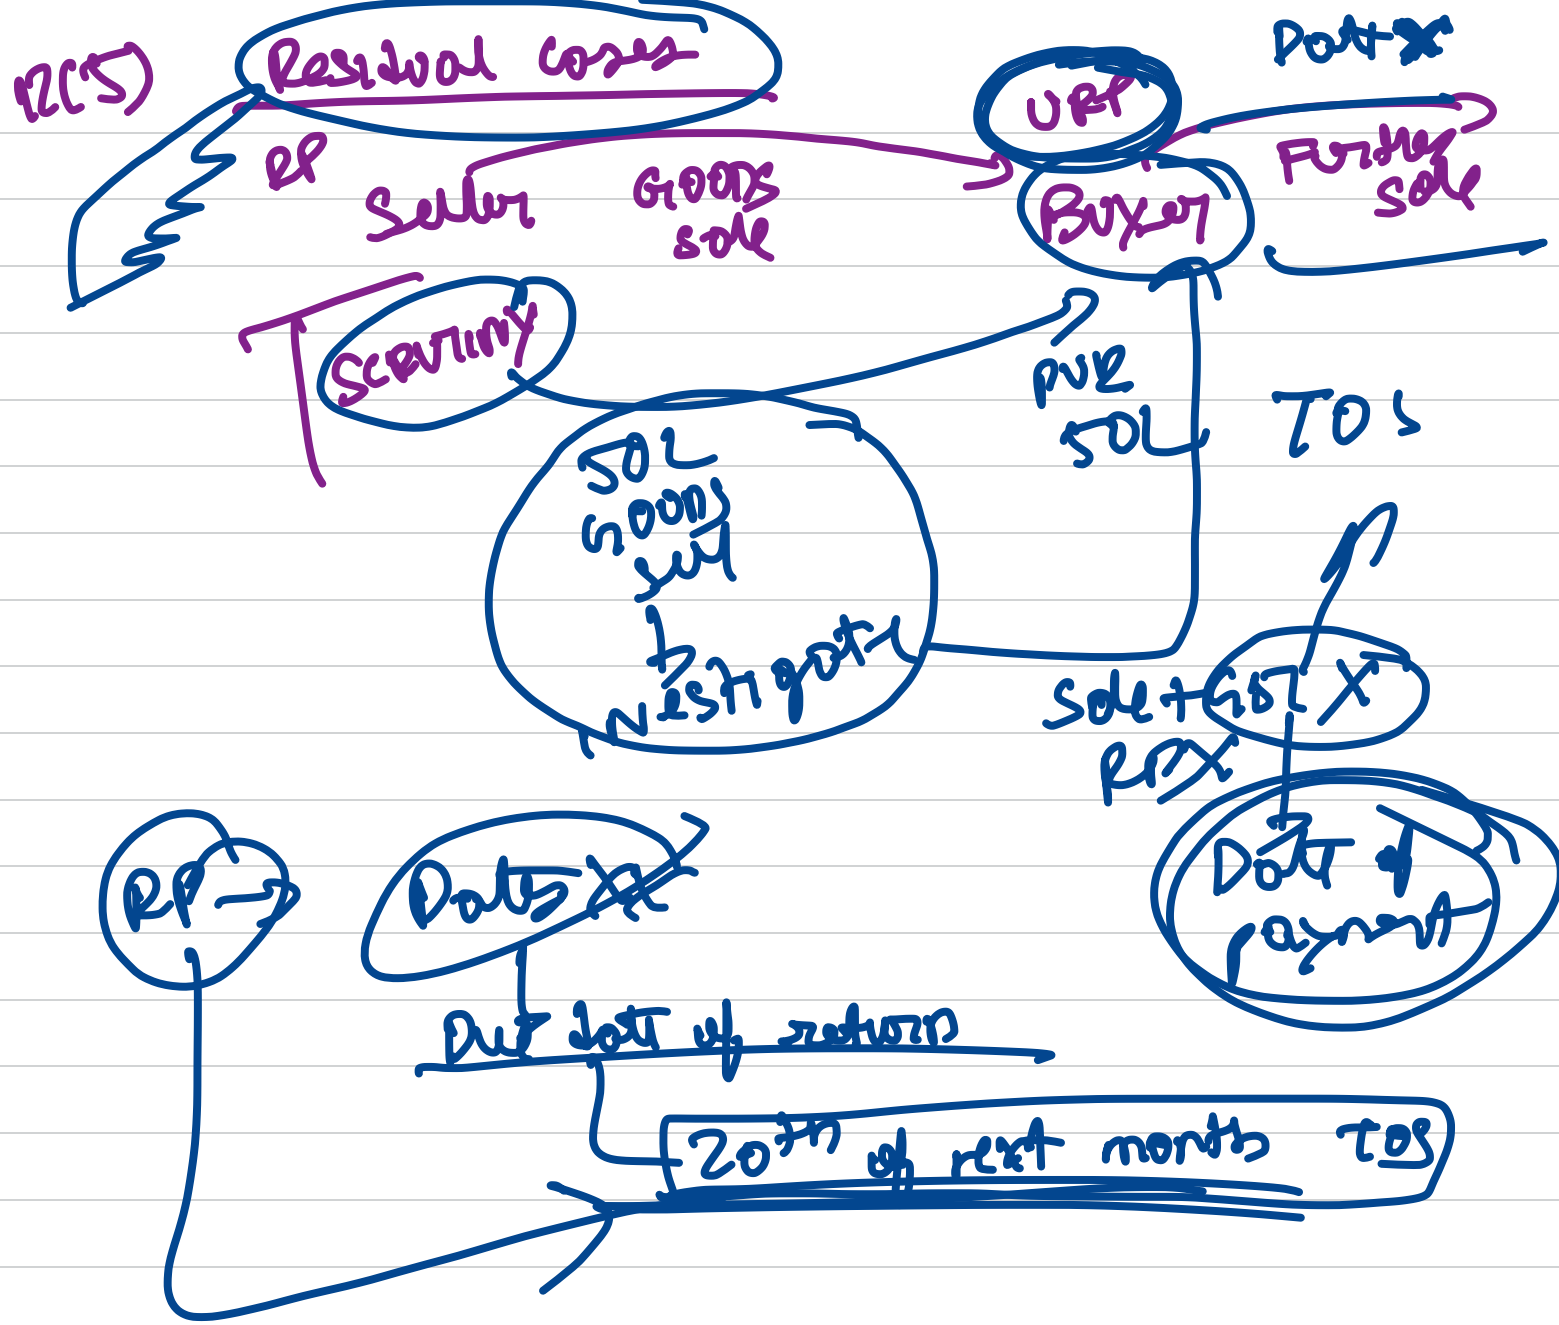 12(5) Residual cases
RP
Seller
GOODS
sale
URP
Buyer
Date X
Further
sale
SCRUTINY
PUR
50L
TOS
50L
GOODS
sell
Investigate
Sale + GST X
RP X
Date of
payment
RP
Date X
Due date of return
20th of next month TOS